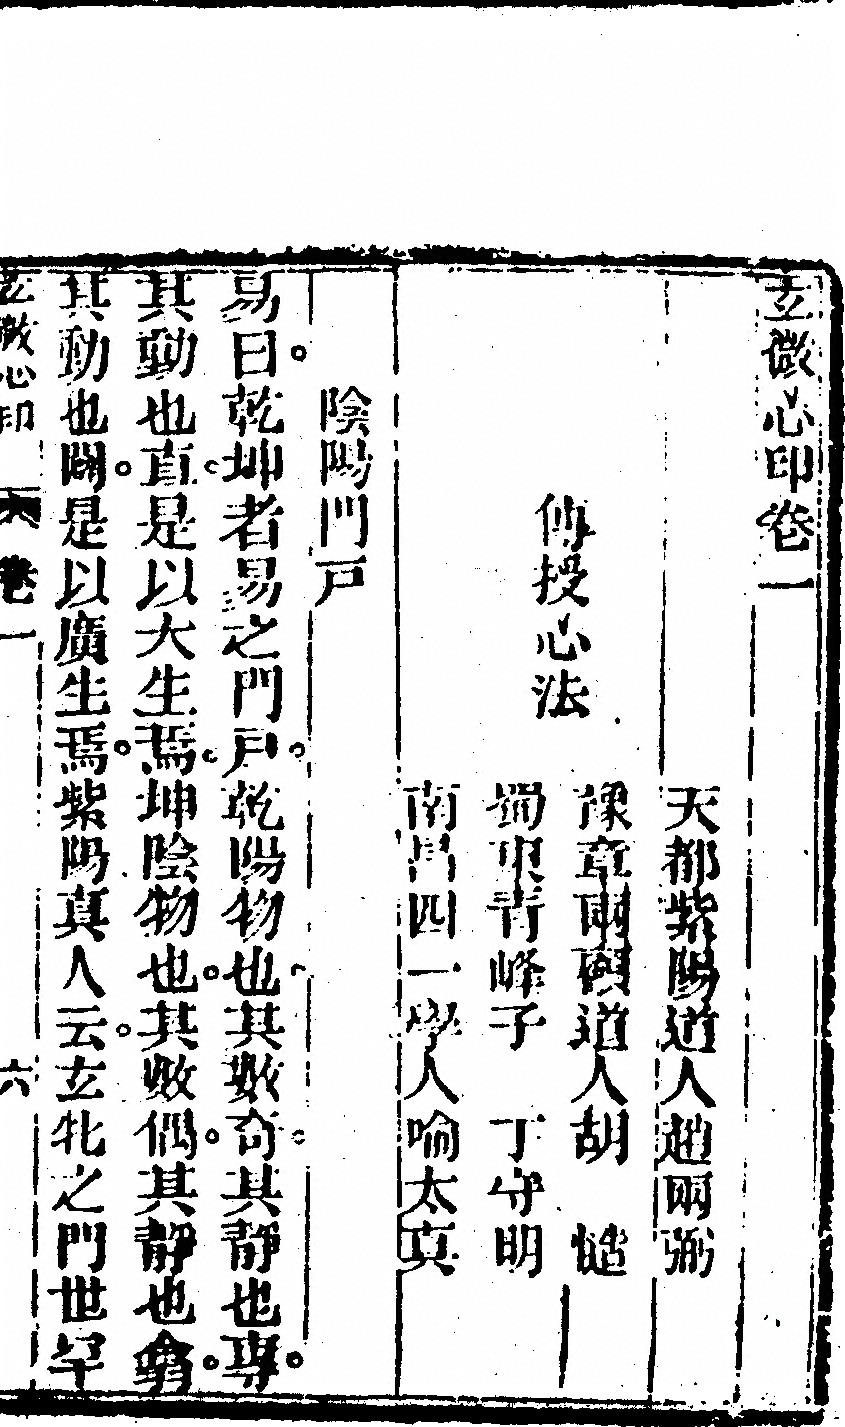 玄微心印卷一
天都紫陽道人趙兩弼
豫章兩碉道人胡　慥
傳授心法
蜀東青峰子　丁守明
南昌四一學人喻太真
陰陽門戸
易曰。乾坤者易之門戸。乾陽物也。其數奇。其靜也專。
其動也直。是以大生焉。坤陰物也。其數偶。其靜也翕。
其動也闢。是以廣生焉。紫陽真人云。玄牝之門世罕
玄微心印　卷一　六